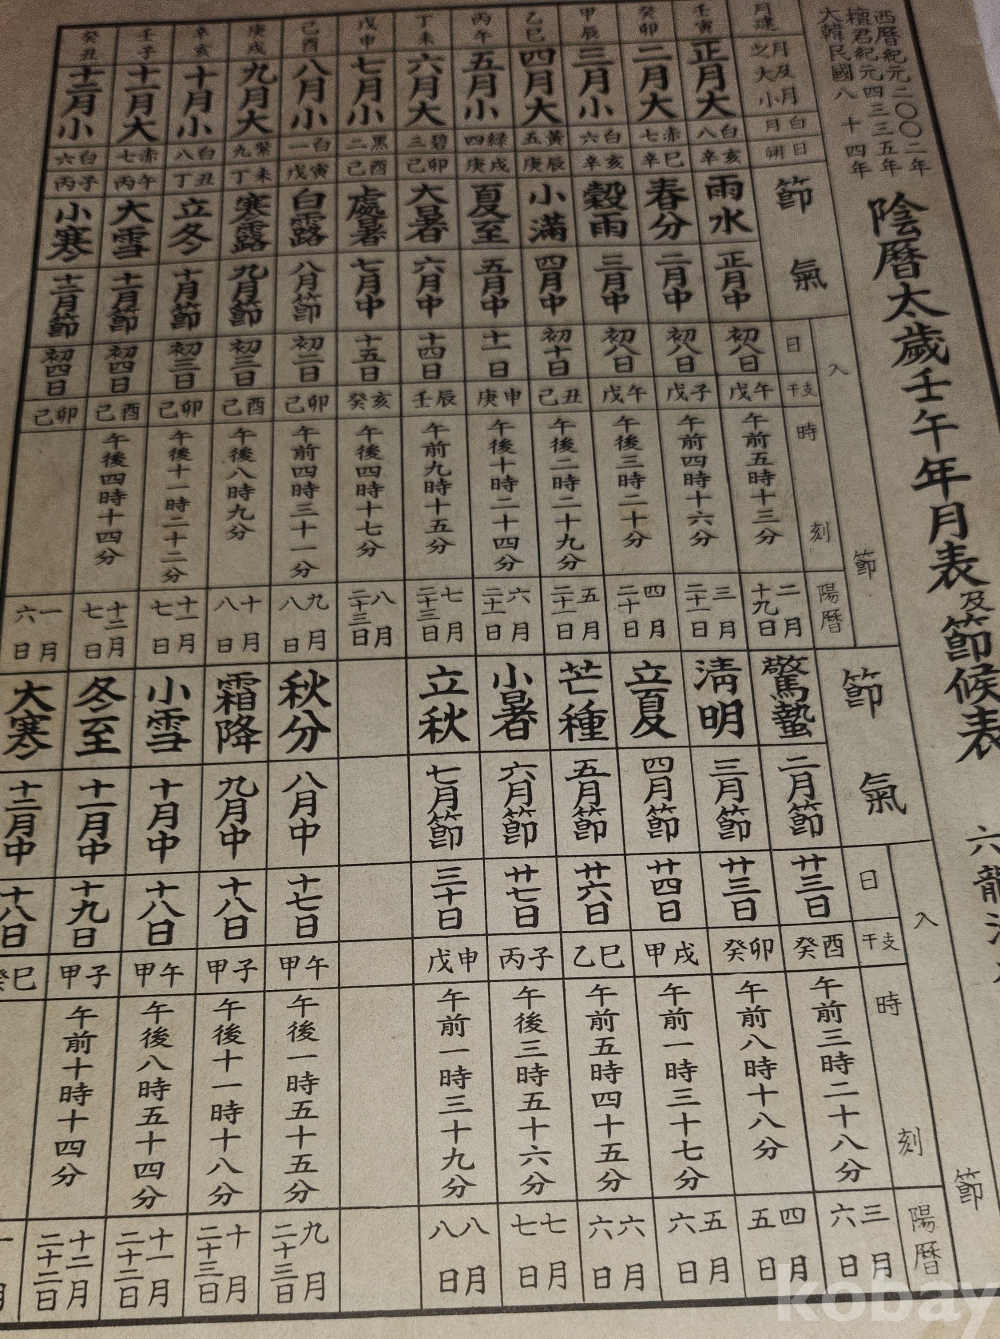 西暦紀元二〇〇二年
檀君紀元四三三五年
大韓民國八十四年
陰暦太歲壬午年月表及節候表 六龍
月建 月及月之大小 月白 節氣 入節 日 干支 時刻 陽暦 節氣 入節 日 干支 時刻 陽暦
壬寅 正月大 八白 辛亥 雨水 正月中 初八日 戊午 午前五時十三分 二月十九日 驚蟄 二月節 廿三日 癸酉 午前三時二十八分 三月六日
癸卯 二月大 七赤 辛巳 春分 二月中 初八日 戊子 午前四時十六分 三月二十一日 清明 三月節 廿三日 癸卯 午前八時十八分 四月五日
甲辰 三月小 六白 辛亥 穀雨 三月中 初八日 戊午 午後三時二十分 四月二十日 立夏 四月節 廿四日 甲戌 午前一時三十七分 五月六日
乙巳 四月大 五黃 庚辰 小滿 四月中 初十日 己丑 午後二時二十九分 五月二十一日 芒種 五月節 廿六日 乙巳 午前五時四十五分 六月六日
丙午 五月小 四緑 庚戌 夏至 五月中 十一日 庚申 午後十時二十四分 六月二十一日 小暑 六月節 廿七日 丙子 午後三時五十六分 七月七日
丁未 六月大 三碧 己卯 大暑 六月中 十四日 壬辰 午前九時十五分 七月二十三日 立秋 七月節 三十日 戊申 午前一時三十九分 八月八日
戊申 七月小 二黑 己酉 處暑 七月中 十五日 癸亥 午後四時十七分 八月二十三日
己酉 八月小 一白 戊寅 白露 八月節 初二日 己卯 午前四時三十一分 九月八日 秋分 八月中 十七日 甲午 午後一時五十五分 九月二十三日
庚戌 九月大 九紫 丁未 寒露 九月節 初三日 己酉 午後八時九分 十月八日 霜降 九月中 十八日 甲子 午後十一時十八分 十月二十三日
辛亥 十月小 八白 丁丑 立冬 十月節 初三日 己卯 午後十一時二十二分 十一月七日 小雪 十月中 十八日 甲午 午後八時五十四分 十一月二十二日
壬子 十一月大 七赤 丙午 大雪 十一月節 初四日 己酉 午後四時十四分 十二月七日 冬至 十一月中 十九日 甲子 午前十時十四分 十二月二十二日
癸丑 十二月小 六白 丙子 小寒 十二月節 初四日 己卯 一月六日 大寒 十二月中 十八日 癸巳
kobay